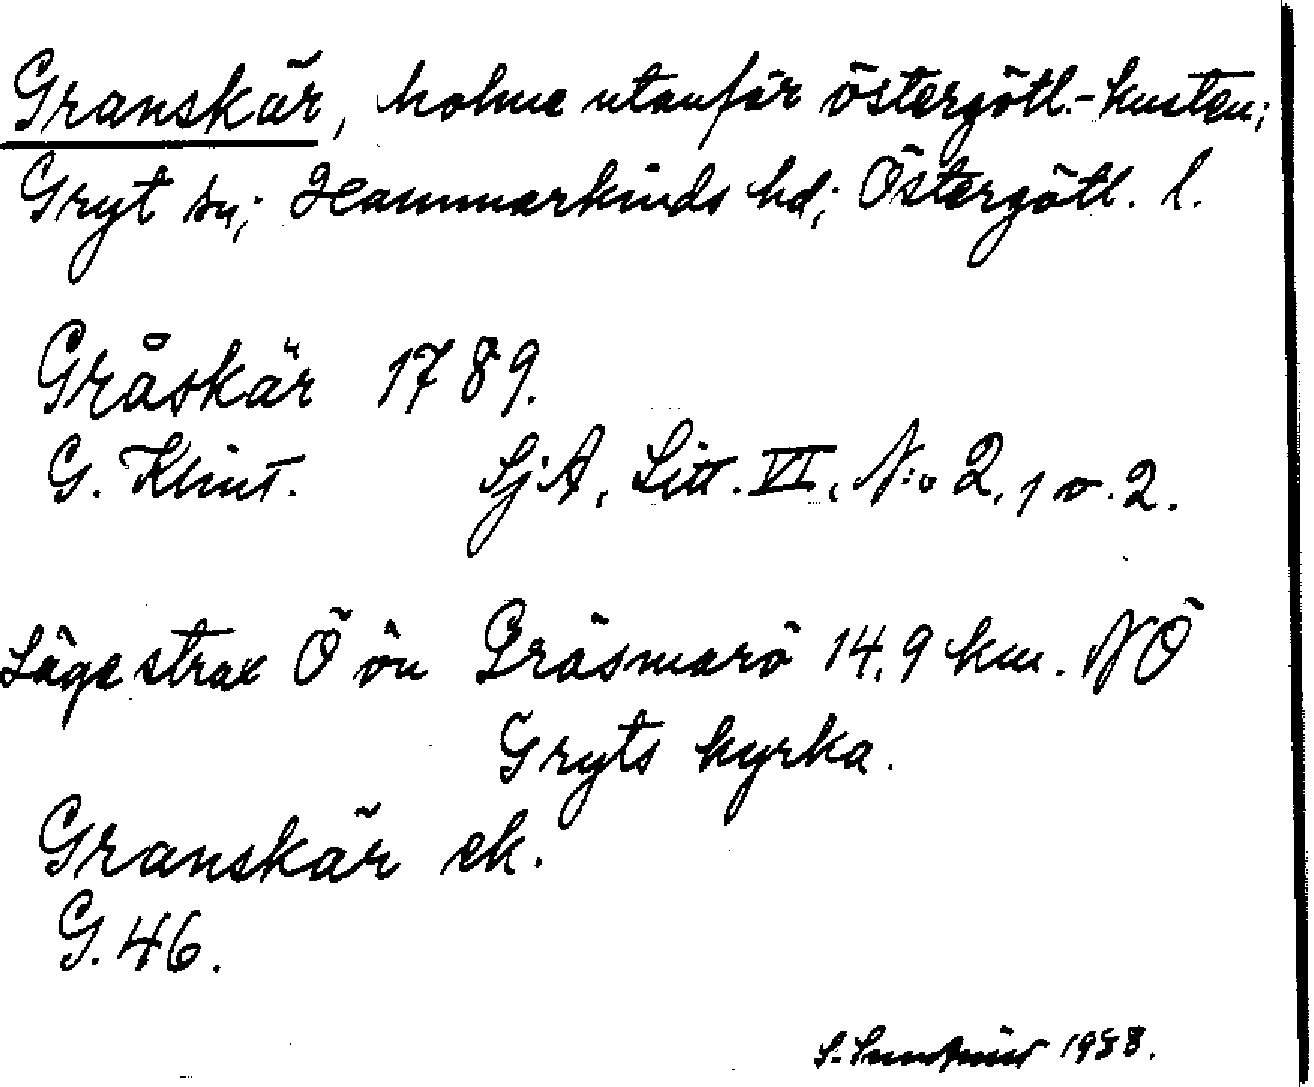 Granskär, holme utanför östergötl.-kusten;
Gryt sn; Hammarkinds hd; Östergötl. l.
Gråskär 1789.
G. Klint. SjA, Litt. VI, N:o 2, 1 o. 2.
Läge strax Ö ön Gräsmarö 14,9 km. NÖ
Gryts kyrka.
Granskär ek.
G. 46.
S. 1958.